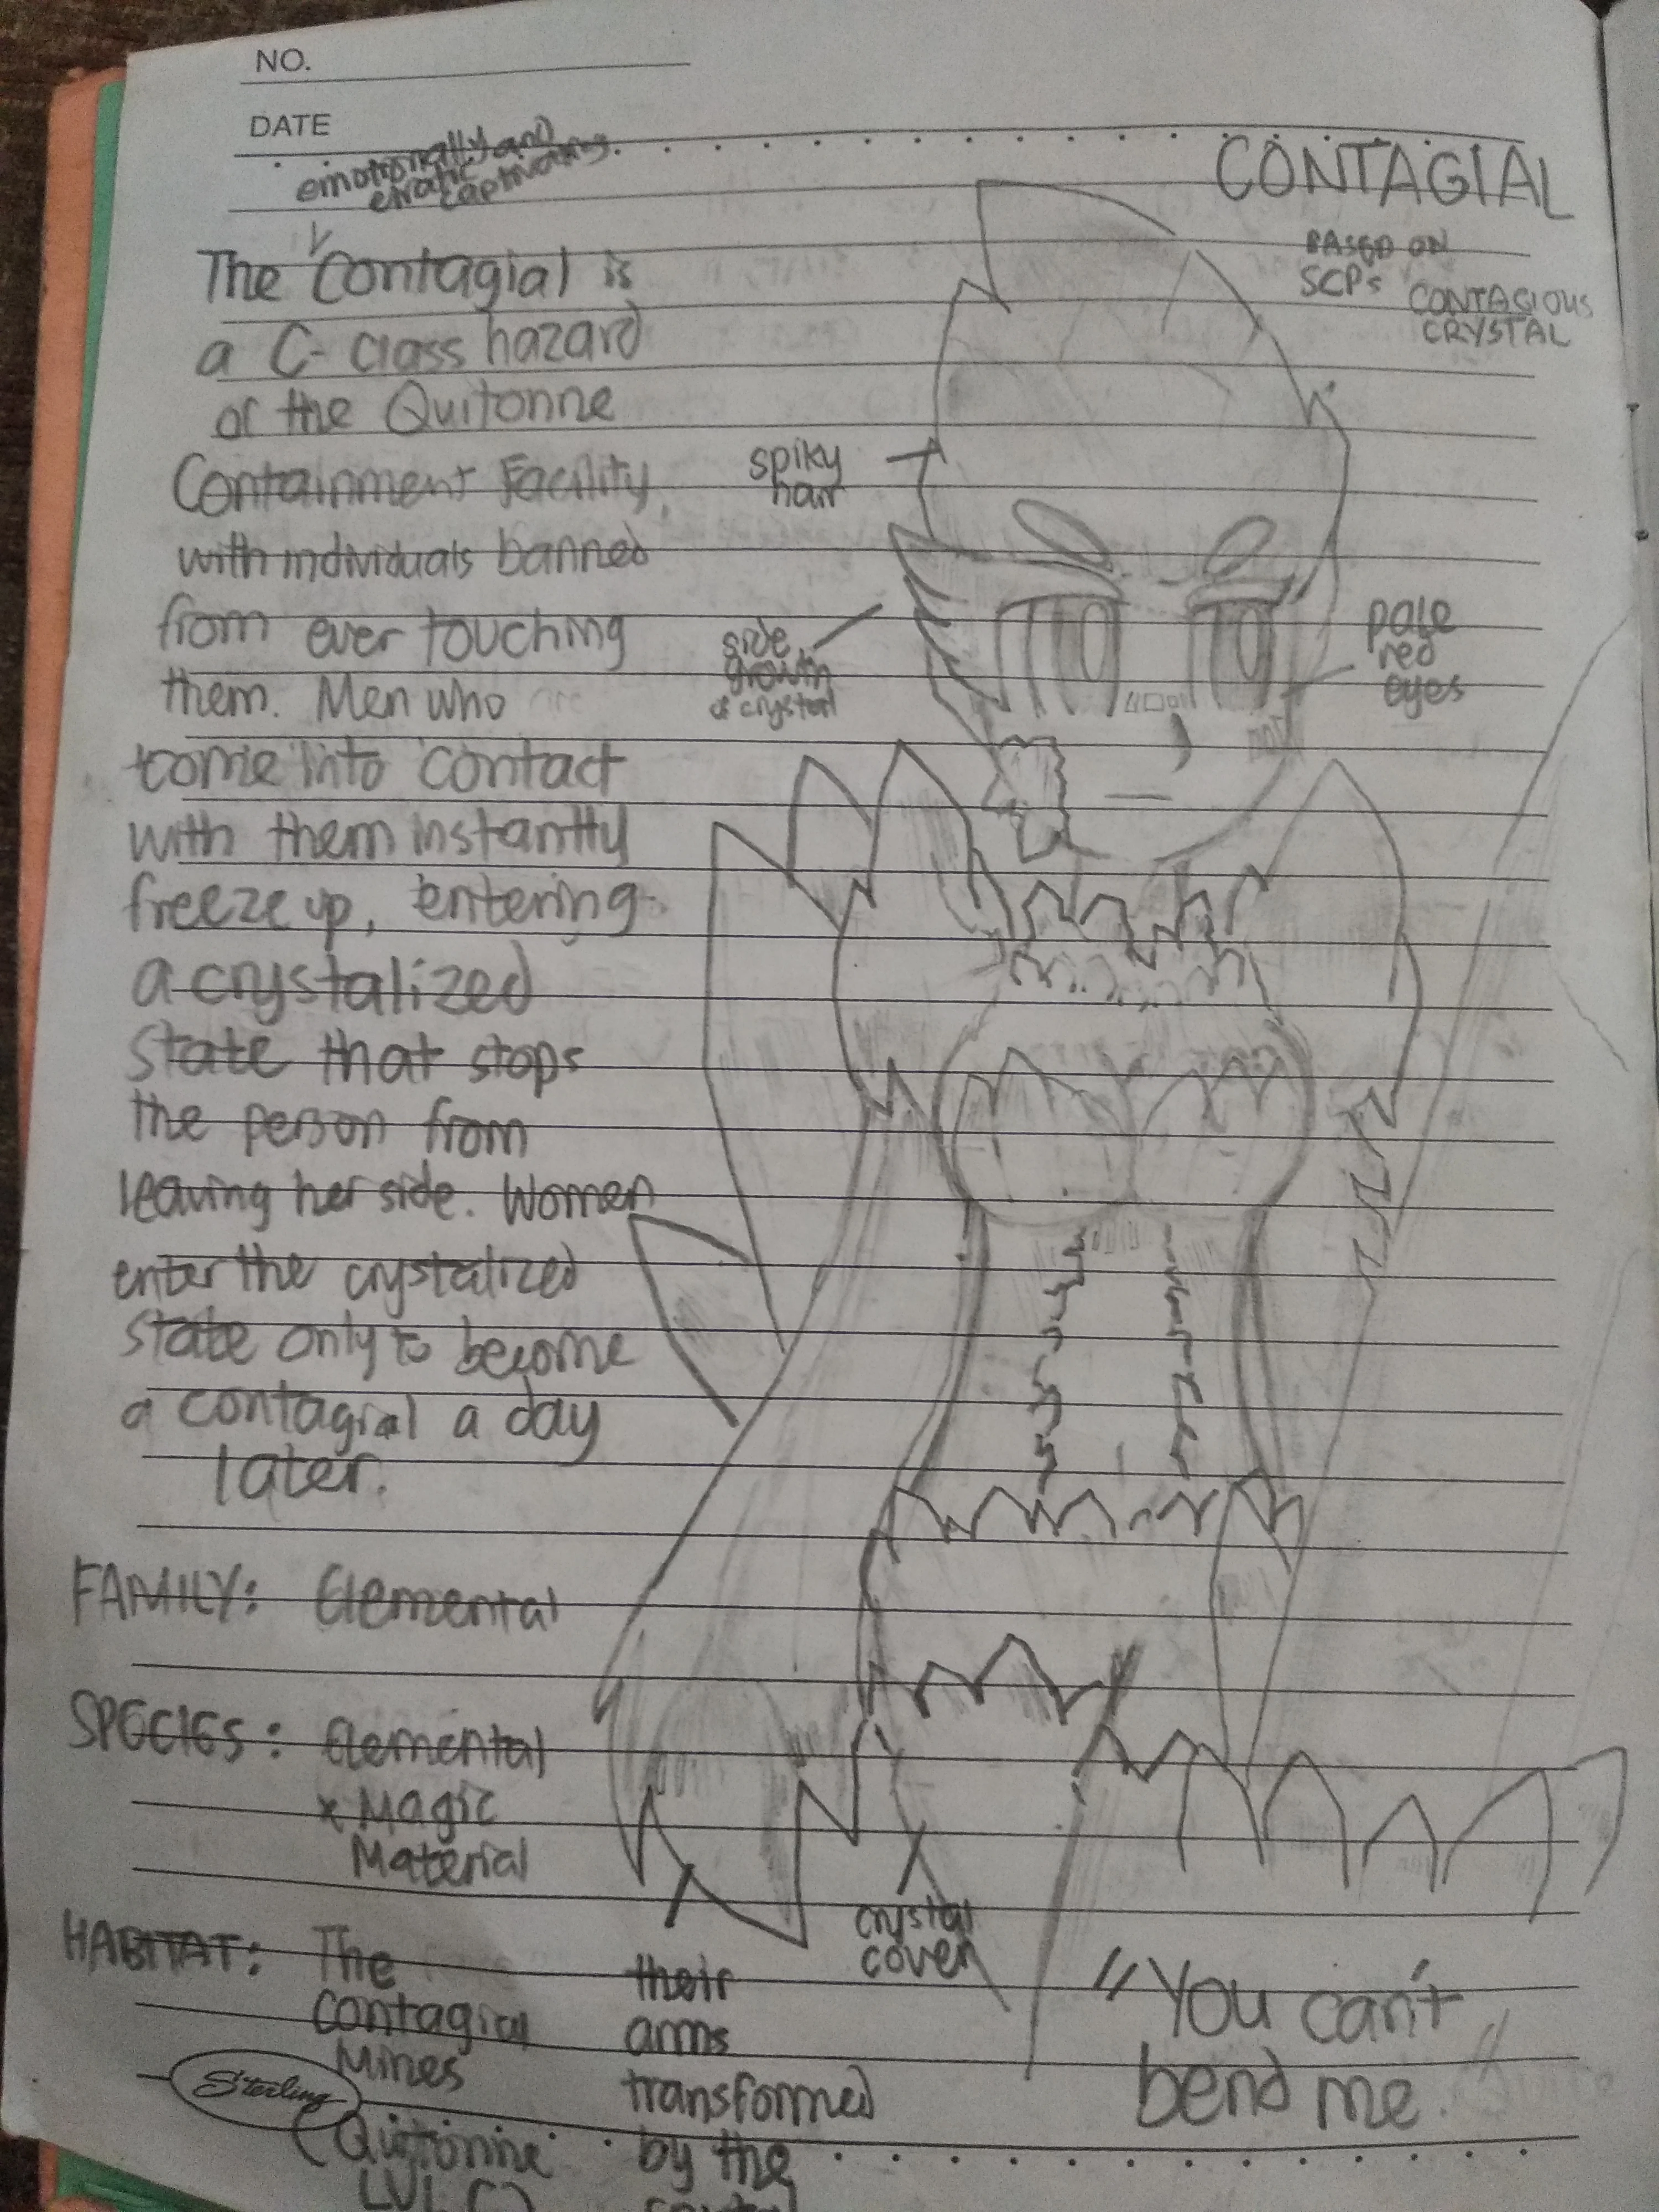 NO.
DATE
emotionally and
erratic
captivating
CONTAGIAL
BASED ON
SCPs
CONTAGIOUS
CRYSTAL
The Contagial is
a C-class hazard
of the Quitonne
Containment Facility,
with individuals banned
from ever touching
them. Men who
come into contact
with them instantly
freeze up, entering
a crystalized
state that stops
the person from
leaving her side. Women
enter the crystalized
state only to become
a contagial a day
later.
spiky
hair
side
growth
of crystal
pale
red
eyes
FAMILY: Elemental
SPECIES: Elemental
x Magic
Material
HABITAT: The
Contagial
Mines
(Quitionne
LVL C)
crystal
cover
their
arms
transformed
by the
"You can't
bend me
Sterling